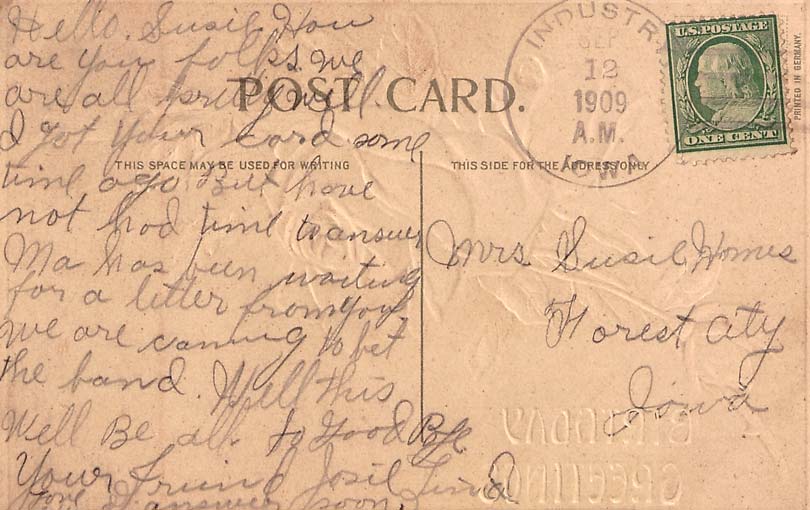 Hello. Susil How
are you folks. we
are all pretty well.
I got your card some
time ago. But have
not had time to answer
Ma has been waiting
for a letter from you
we are canning to bet
the band. Well this
Well Be all to Good Bye
Your friend Josil
answer soon.
POST CARD.
THIS SPACE MAY BE USED FOR WRITING
THIS SIDE FOR THE ADDRESS ONLY
INDUSTRY
SEP
12
1909
A.M.
IOWA
U.S. POSTAGE
ONE CENT
PRINTED IN GERMANY.
Mrs Susil Homes
Forest City
Iowa
BIRTHDAY
GREETINGS